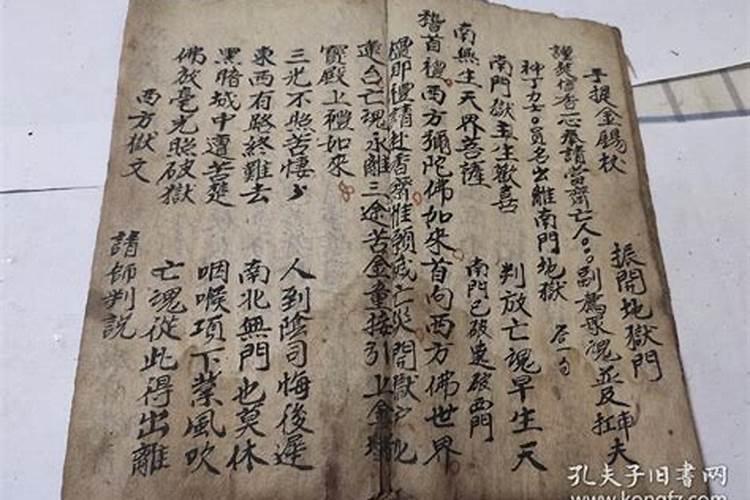 手提金錫杖 振開地獄門
謹焚信香心承請當齋亡人 副薦眾魂並及扛夫
神丁力士 員名出離南門地獄 后一句
南門獄主生歡喜 判放亡魂早生天
南無生天界菩薩 南門已破速破西門
稽首禮西方彌陀佛如來首向西方佛世界
禮即禮請赴香齋惟願
亡魂永離三途苦金童接引上金
寶殿上禮如來
三光不照苦悽 人到陰司悔後遲
東西有路終難去 南北無門也莫休
黑暗城中遭苦楚 咽喉項下業風吹
佛放毫光照破獄 亡魂從此得出離
西方獄文 請師判說
孔夫子旧书网
www.kongfz.com